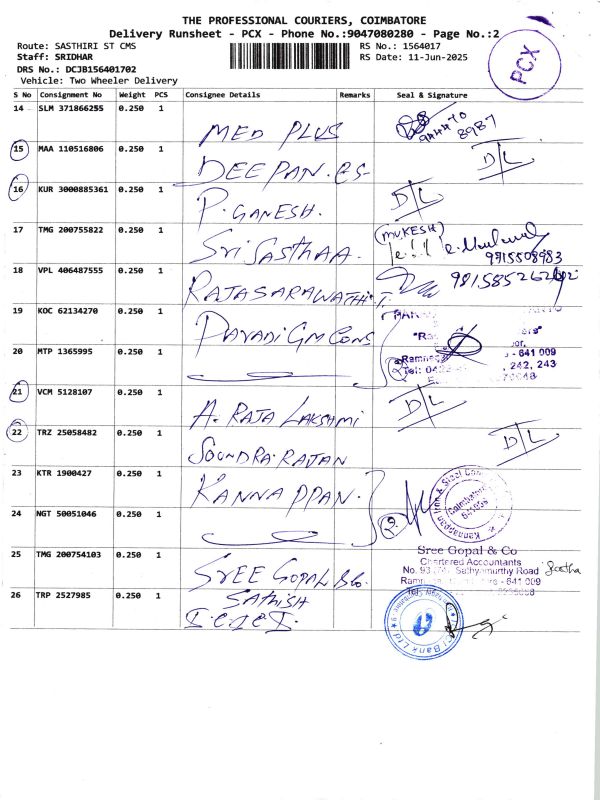 THE PROFESSIONAL COURIERS, COIMBATORE
Delivery Runsheet - PCX - Phone No.:9047080280 - Page No.:2
Route: SASTHIRI ST CMS
RS No.: 1564017
Staff: SRIDHAR
RS Date: 11-Jun-2025
DRS No.: DCJB156401702
Vehicle: Two Wheeler Delivery
PCX
S No Consignment No Weight PCS Consignee Details Remarks Seal & Signature
14 SLM 371866255 0.250 1 MED PLUS
15 MAA 110516806 0.250 1 DEEPAN. D/L
16 KUR 3000885361 0.250 1 P. GANESH. D/L
17 TMG 200755822 0.250 1 Sri Sasthaa. (MUKESH)
18 VPL 406487555 0.250 1 RAJASARAWATHI
19 KOC 62134270 0.250 1
20 MTP 1365995 0.250 1
- 641 009
, 242, 243
21 VCM 5128107 0.250 1 A. RAJA LAKSHMI D/L
22 TRZ 25058482 0.250 1 SOUNDRA RAJAN D/L
23 KTR 1900427 0.250 1 KANNAPPAN.
24 NGT 50051046 0.250 1 2.
25 TMG 200754103 0.250 1 SREE GOPAL & Co.
Sree Gopal & Co
Chartered Accountants
Road
- 641 009
26 TRP 2527985 0.250 1 SATHISH
I.C.I.C.I.
Bank Ltd